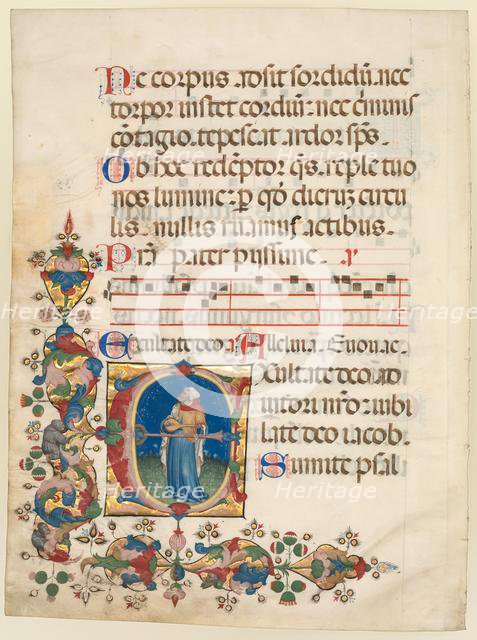 Ne corpus adsit sordidū nec
torpor instet cordiū: nec c̄minis
cōtagio. tepescat ardor sp̄s.
Ob hoc redēptor q̄s. reple tuo
nos lumine: p̄ qd̄ dierum circu
lis. nullis ruamus actibus.
Pr̄a pater pyssime.
Exultate deo: Alleluia. Euouae.
Exultate deo ad
iutori nr̄o: iubi
late deo iacob.
Sumite psal
Heritage
Heritage
Heritage
Heritage
Heritage
Heritage
Heritage